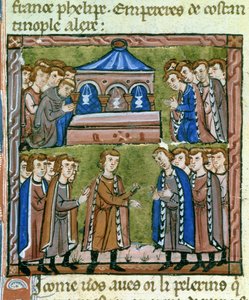 france phelipe. Empereres de costan
tinople alexe:
Comme nos aues oi li pelerins q